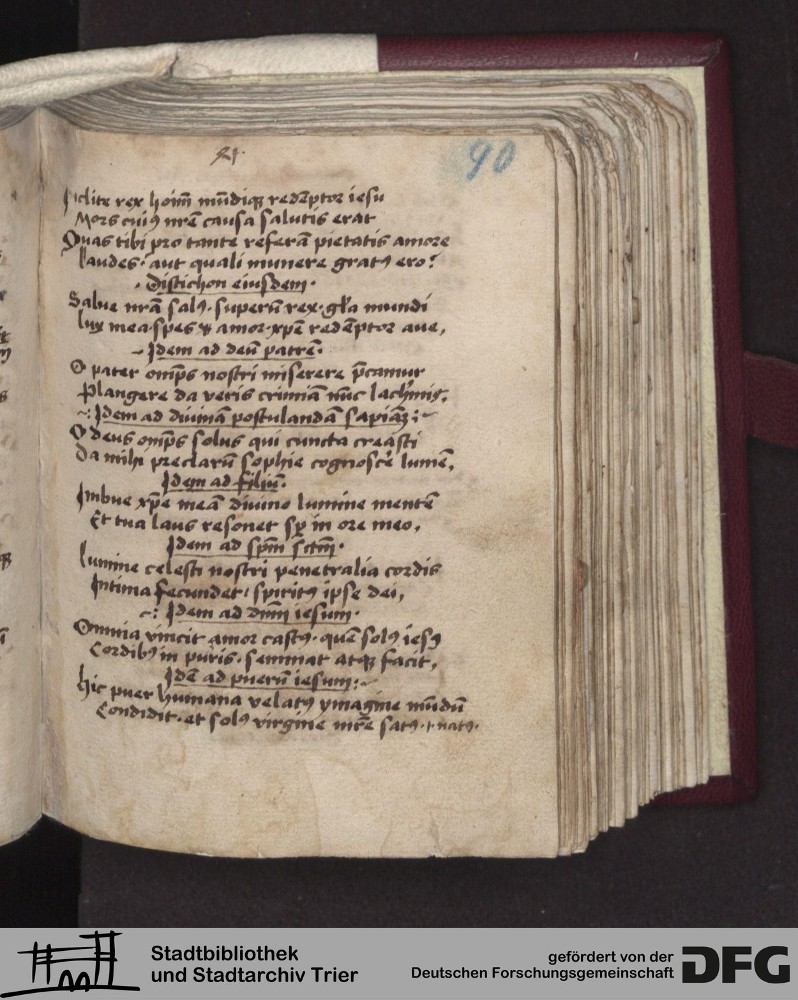 90
Inclite rex hoim̄ mūdiqꝫ redēptor iesu
Mors cuiꝰ nr̄e causa salutis erat
Quas tibi pro tante referā pietatis amore
laudes· aut quali munere gratꝰ ero?
· Distichon eiusdem·
Salue nr̄a salꝰ· superū rex· gl̄a mundi
lux mea· spes & amor· xp̄e redēptor aue,
– Idem ad deū patrē·
O pater omp̄s nostri miserere p̄camur
Plangere da veris crimīa nūc lachrimis,
~: Idem ad diuinā postulandā sapīaꝫ :~
O deus omp̄s solus qui cuncta creasti
Da mihi preclarū sophie cognoscēr lumē,
Idem ad filiū·
Imbue xp̄e meā diuino lumine mentē
Et tua laus resonet sꝑ in ore meo,
Idem ad sp̄m sctm̄·
Lumine celesti nostri penetralia cordis
Intima fecundet· spiritus ipse dei,
~: Idem ad dn̄m iesum·
Omnia vincit amor castꝰ· quē solꝰ iesꝰ
Cordibꝰ in puris· seminat atqꝫ facit,
Idē ad puerū iesum:~
Hic puer humana velatꝰ ymagine mūdū
Condidit· et solꝰ virgine mr̄e satꝰ· t natꝰ·
Stadtbibliothek
und Stadtarchiv Trier
gefördert von der
Deutschen Forschungsgemeinschaft
DFG